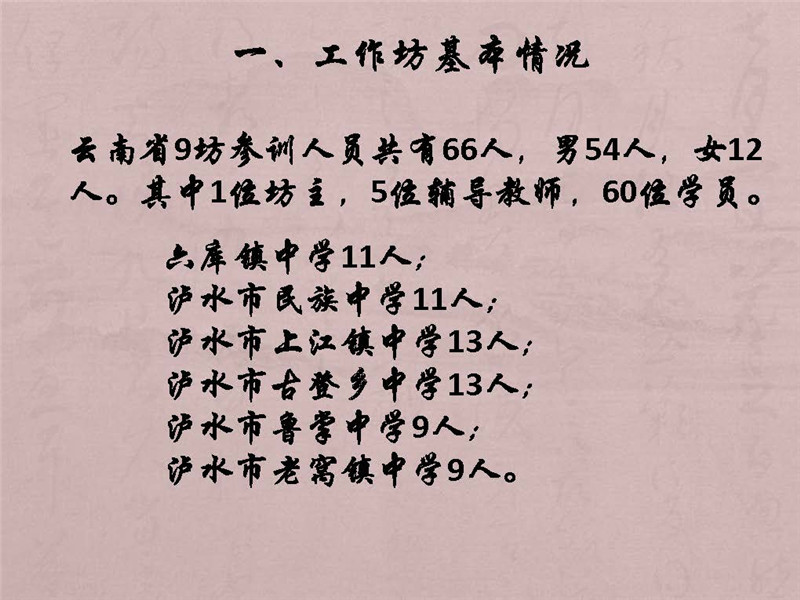 一、工作坊基本情况
云南省9坊参训人员共有66人，男54人，女12
人。其中1位坊主，5位辅导教师，60位学员。
六库镇中学11人；
泸水市民族中学11人；
泸水市上江镇中学13人；
泸水市古登乡中学13人；
泸水市鲁掌中学9人；
泸水市老窝镇中学9人。